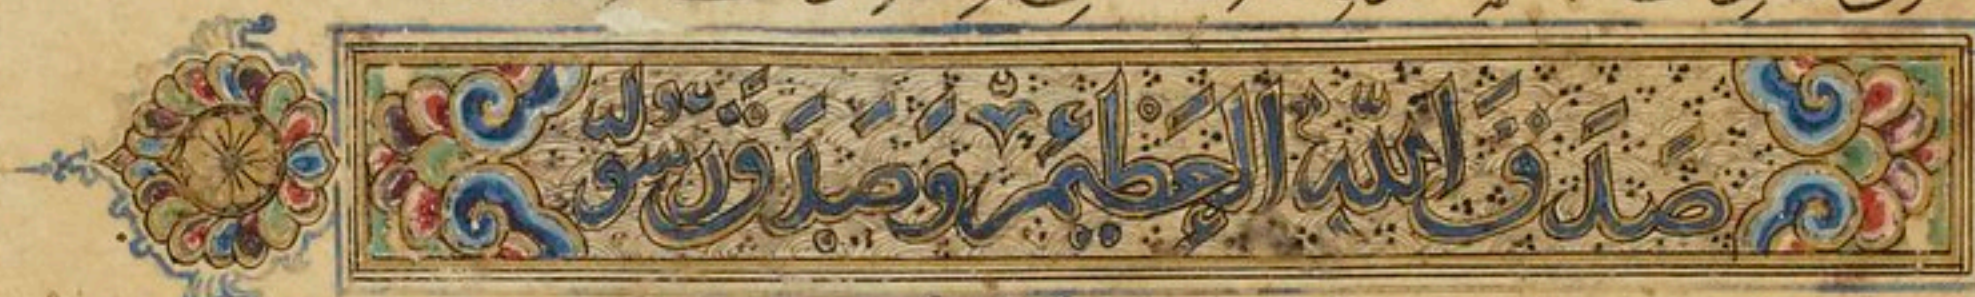 صَدَقَ اللّٰهُ الْعَظِيمُ وَصَدَقَ رَسُولُهُ